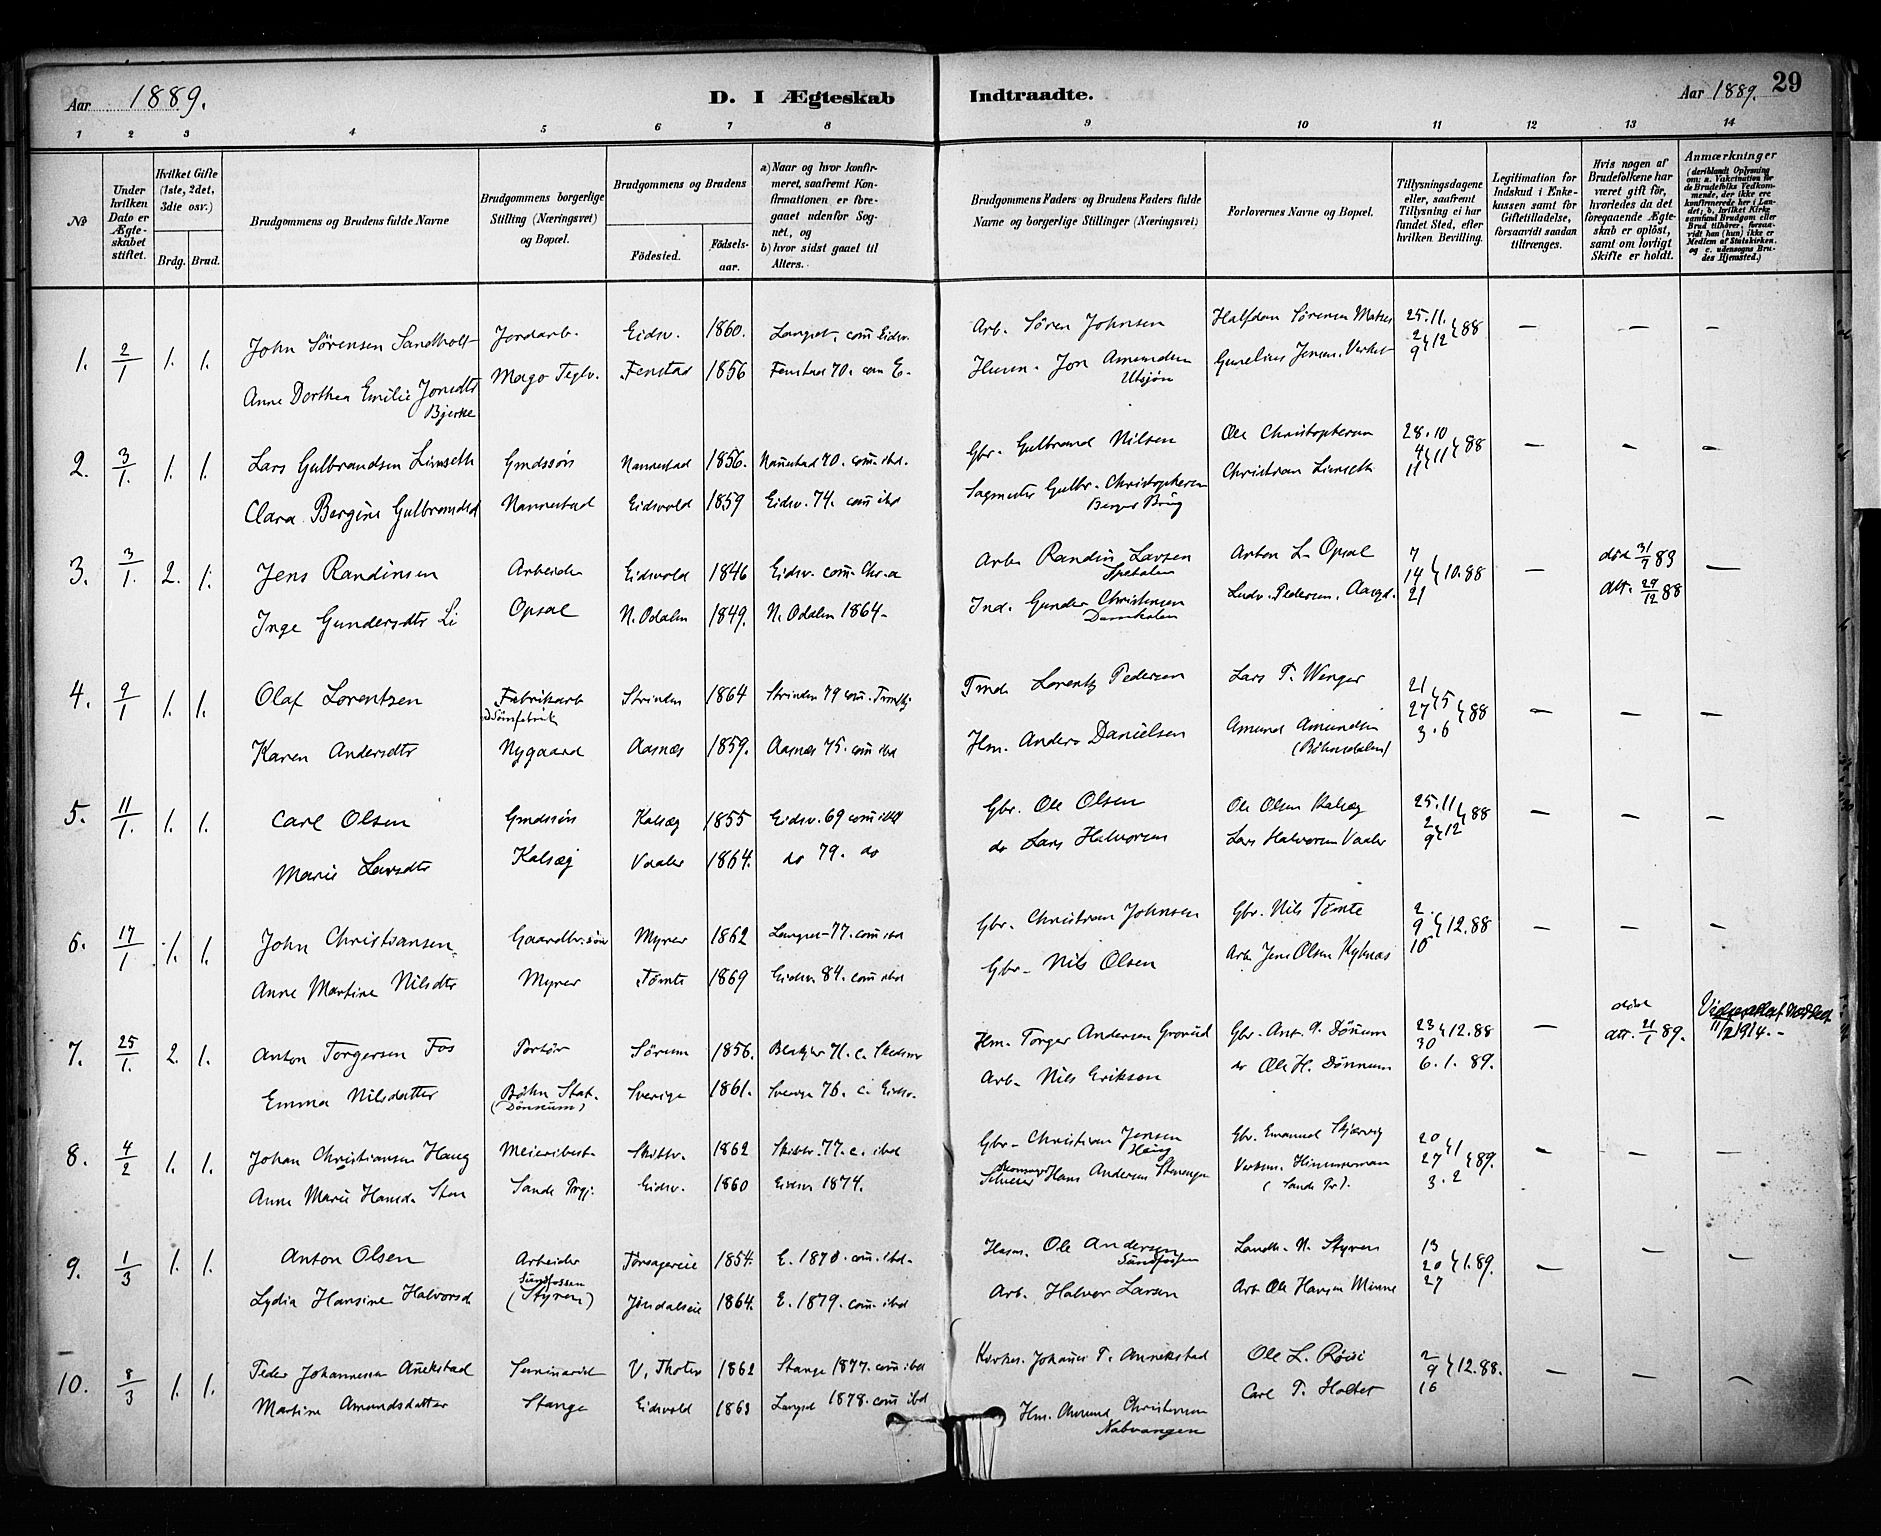 Aar 1889.
D. I Ægteskab Indtraadte.
Aar 1889. 29
1 2 3 4 5 6 7 8 9 10 11 12 13 14
No
Under hvilken Dato er Ægteskabet stiftet.
Hvilket Gifte (1ste, 2det, 3die osv.)
Brdg. Brud.
Brudgommens og Brudens fulde Navne
Brudgommens borgerlige Stilling (Næringsvei) og Bopæl.
Brudgommens og Brudens
Födested. Födselsaar.
a) Naar og hvor konfirmeret, saafremt Konfirmationen er foregaaet udenför Sognet, og
b) hvor sidst gaaet til Alters.
Brudgommens Faders og Brudens Faders fulde Navne og borgerlige Stillinger (Næringsvei)
Forlovernes Navne og Bopæl.
Tillysningsdagene eller, saafremt Tillysning ei har fundet Sted, efter hvilken Bevilling.
Legitimation for Indskud i Enkekassen samt for Giftetilladelse, forsaavidt saadan tiltrænges.
Hvis nogen af Brudefolkene har været gift för, hvorledes da det foregaaende Ægteskab er oplöst, samt om lovligt Skifte er holdt.
Anmærkninger (deriblandt Oplysning om: a. Vakcination for de Brudefolks Vedkommende, der ikke ere konfirmerede her i Landet; b. hvilket Kirkesamfund Brudgom eller Brud tilhörer, forsaavidt han (hun) ikke er Medlem af Statskirken, og c. udensogns Brudes Hjemsted.)
1. 2/1 1. 1. John Sörensen Sandholt Jordarb. Eidsv. 1860. Langset. com Eidsv. Arb. Sören Johnsen Halfdan Sörensen 25.11. 2 9 12 88 — — —
Anne Dorthea Emilie Jonsdtr Bjerke Mago Teglv. Fenstad 1856 Fenstad 70. com E. Husm. Jon Amundsen Utsjön Gunelius Jensen
2. 3/1. 1. 1. Lars Gulbrandsen Limseth Gmdssön Nannestad 1856. Nannestad 70. com. ibd. Gbr. Gulbrand Nilsen Ole Christophersen 28.10 4 11 11 88 — — —
Clara Bergine Gulbrandsd Nannestad Eidsvold 1859 Eidsv. 74. com ibd Sagmester Gulbr. Christophersen Christian Limseth
3. 3/1. 2. 1. Jens Randinsen Arbeider Eidsvold 1846 Eidsv. com. Chr.a Arb. Randin Larsen Anton L. Opsal 7 14 21 10.88 — död 31/7 83 —
Inge Gundersdtr Li Opsal N. Odalen 1849. N. Odalen 1864. Ind. Gunder Christensen Ludv. Pedersen att. 29/12 88
4. 9/1 1. 1. Olaf Lorentzen Fabrikarb Strinden 1864 Strinden 79 com. Lorentz Pedersen Lars P. Wenger 21 27 5 3.6 88 — — —
Karen Andersdtr Nygaard Aasnæs 1859. Aasnæs 75. com ibd Hm. Anders Danielsen Amund Amundsen (Böhnsdalen)
5. 11/1. 1. 1. Carl Olsen Gmdssön Kalsæg 1855 Eidsv. 69 com ibd Gbr. Ole Olsen Ole Olsen Kalsæg 25.11 2 9 12 88 — — —
Marie Larsdtr Kalsæg Vaaler 1864. do 79. do do Lars Halvorsen Lars Halvorsen Vaaler
6. 17/1 1. 1. John Christiansen Gaardbr.sön Myrer 1862 Langset 77. com ibd Gbr. Christian Johnsen Gbr. Nils Tömte 2. 9 16 12.88 — — —
Anne Martine Nilsdtr Myrer Tömte 1869 Eidsv. 84. com ibd Gbr. Nils Olsen Arb. Jens Olsen
7. 25/1. 2. 1. Anton Torgersen Fos Sörum 1856. 71. c. Skedsmo Hm. Torger Andersen Gbr. Ant. P. Dönnum 23 30 12.88 — död att. 21/1 89. 11/2 1914.
Emma Nilsdatter Böhn Stat. (Dönnum) Sverige 1861. Sverige 76. c. Eidsv. Arb. Nils Erikson do Ole H. Dönnum 6. 1. 89.
8. 4/2 1. 1. Johan Christiansen Haug Meieribest. Skibtv. 1862 Skibtv. 77. c. ibd Gbr. Christian Jensen Haug Gbr. Emanuel 20 27 1 3.2 89. — — —
Anne Marie Hansd. Sten Sande Eidsv. 1860 Eidsv. 1874. Hans Andersen (Sande Br).
9. 1/3 1. 1. Anton Olsen Arbeider 1854. E. 1870. com. ibd. Husm. Ole Andersen Sandfossen Landh. N. Styren 13 20 27 1.89. — — —
Lydia Hansine Halvorsd Sandfossen (Styren) 1864. E. 1879. com. ibd Arb. Halvor Larsen Arb. Ole Hansen Minne
10. 8/3 1. 1. Peder Johannesen Annekstad Seminarist V. Thoten 1862 Stange 1877. com ibd Johannes P. Annekstad Ole L. Röisi 2 9 16 12.88. — — —
Martine Amundsdatter Stange Eidsvold 1863 Langset 1878. com ibd Hm. Amund Christensen Nabvangen Carl P. Holter